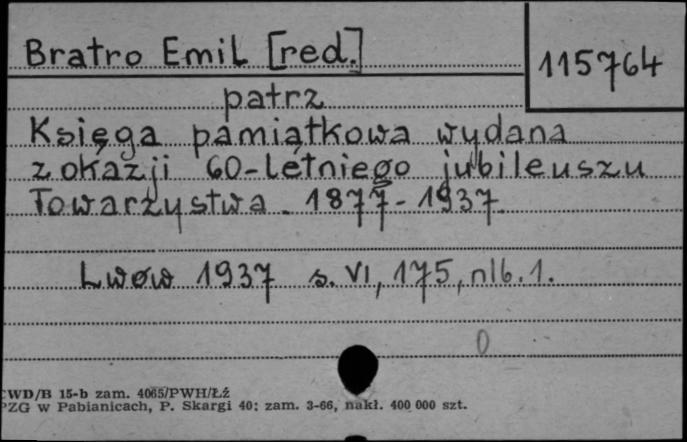 Bratro Emil [red.]
115764
patrz
Księga pamiątkowa wydana
z okazji 60-letniego jubileuszu
Towarzystwa. 1877-1937.
Lwów 1937 s. VI, 175, nlb. 1.
0
CWD/B 15-b zam. 4065/PWH/Łź
PZG w Pabianicach, P. Skargi 40; zam. 3-66, nakł. 400 000 szt.